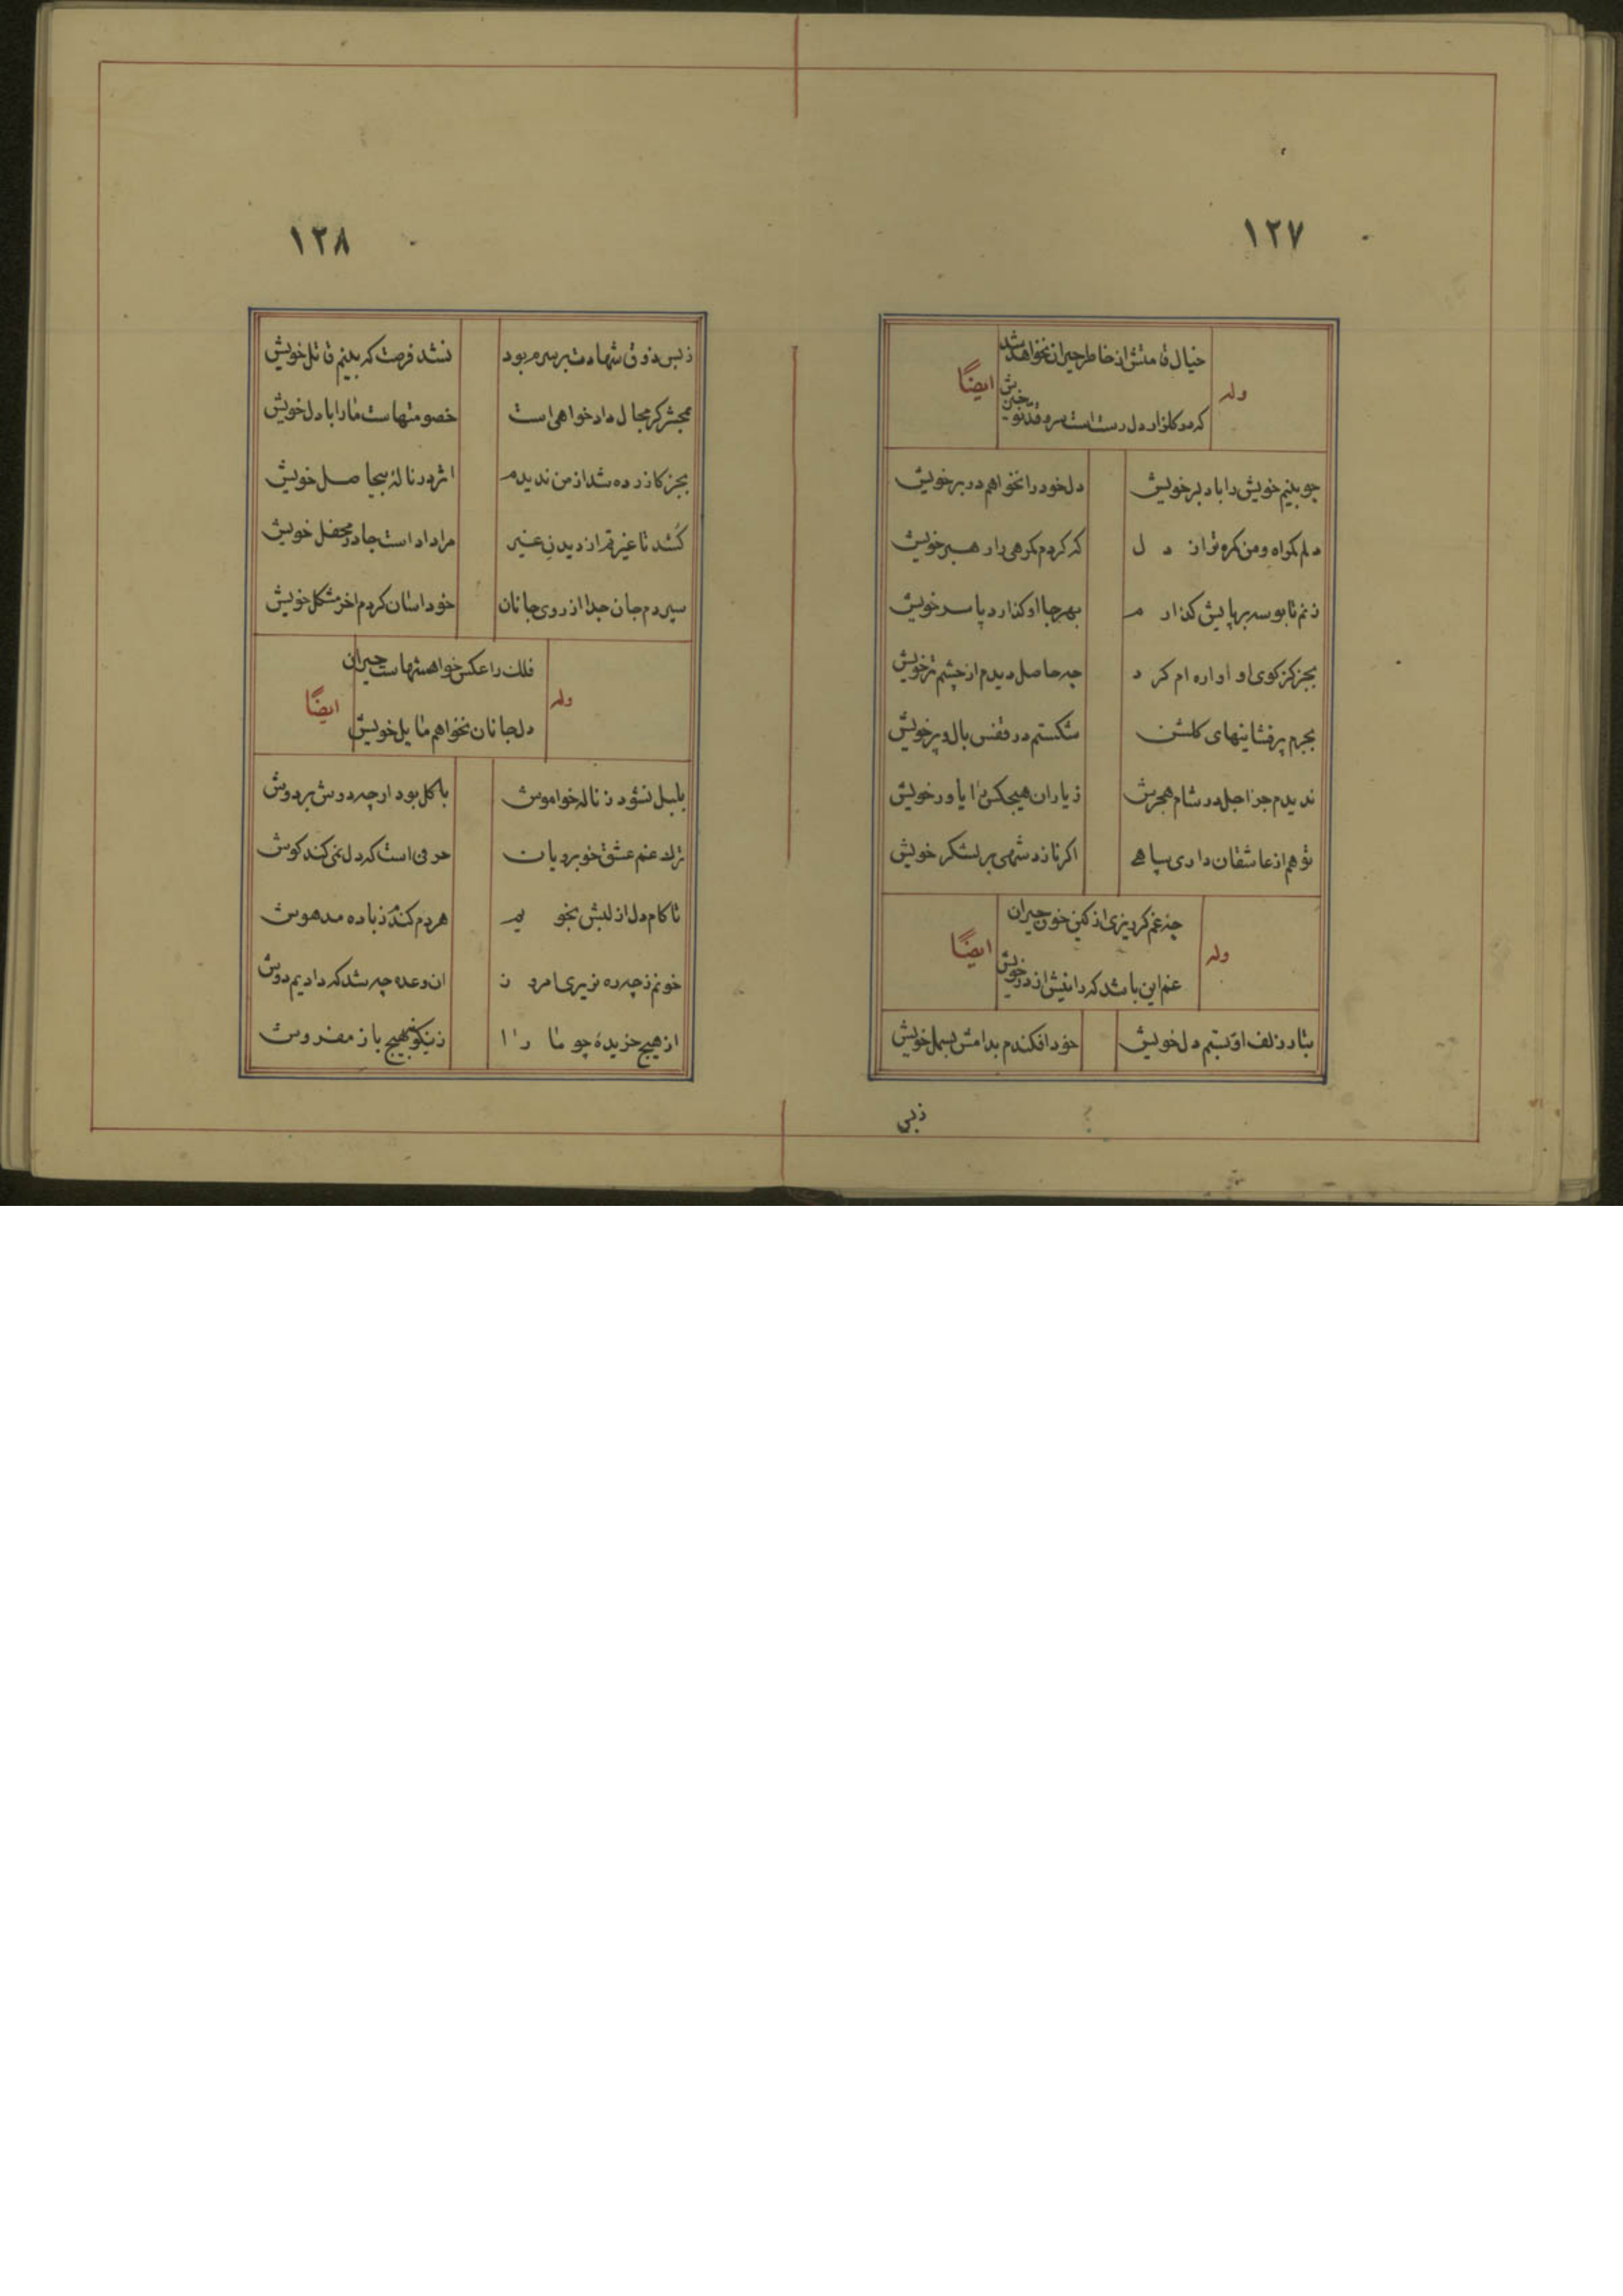 ۱۲۷
خیال قامتش از خاطر حیران نخواهد شد
وله ایضًا
که در کلزار دل رسته است سرو قد
چو بینم خویش را با دلبر خویش دل خود را نخواهم در بر خویش
دلم کمراه و من کمره تر از دل که کردم کمرهی را رهبر خویش
زنم تا بوسه بر پایش کذارم بهر جا او کذارد پا سر خویش
بجز کز کوی او اواره ام کرد چه حاصل دیدم از چشم تر خویش
بجرم پرفشانیهای کلشن شکستم در قفس بال و پر خویش
ندیدم جز اجل در شام هجرش ز یاران هیچکس را یاور خویش
تو هم از عاشقان داری سپاهی اکر نازد شهی بر لشکر خویش
چه غم کر ریزی از کین خون حیران
وله ایضًا
غم این باشد که رانیش از در خویش
بتار زلف او بستم دل خویش خود افکندم بدامش بسمل خویش
زبس
۱۲۸
زبس ذوق شهادت بر سرم بود نشد فرصت که بینم قاتل خویش
بمحشر کر مجال داد خواهی است خصومتهاست ما را با دل خویش
بجز کازرده شد از من ندیدم اثر در نالهٔ بیحاصل خویش
کُشد تا غیرتم از دیدنِ غیر مرا داد است جا در محفل خویش
سپردم جان جدا از روی جانان خود اسان کردم اخر مشکل خویش
فلک را عکس خواهشهاست حیران
وله ایضًا
دل جانان نخواهم مایل خویش
بلبل نشود ز ناله خواموش با کل بود ار چه دوش بر دوش
ترک غم عشق خوبرویان حرفی است که دل نمی کند کوش
تا کام دل از لبش بخویم هر دم کندم ز باده مدهوش
خونم ز چه ره نریری امروز ان وعده چه شد که دادیم دوش
از هیچ خریدهٔ چو ما را زینکونه بهیچ باز مفروش